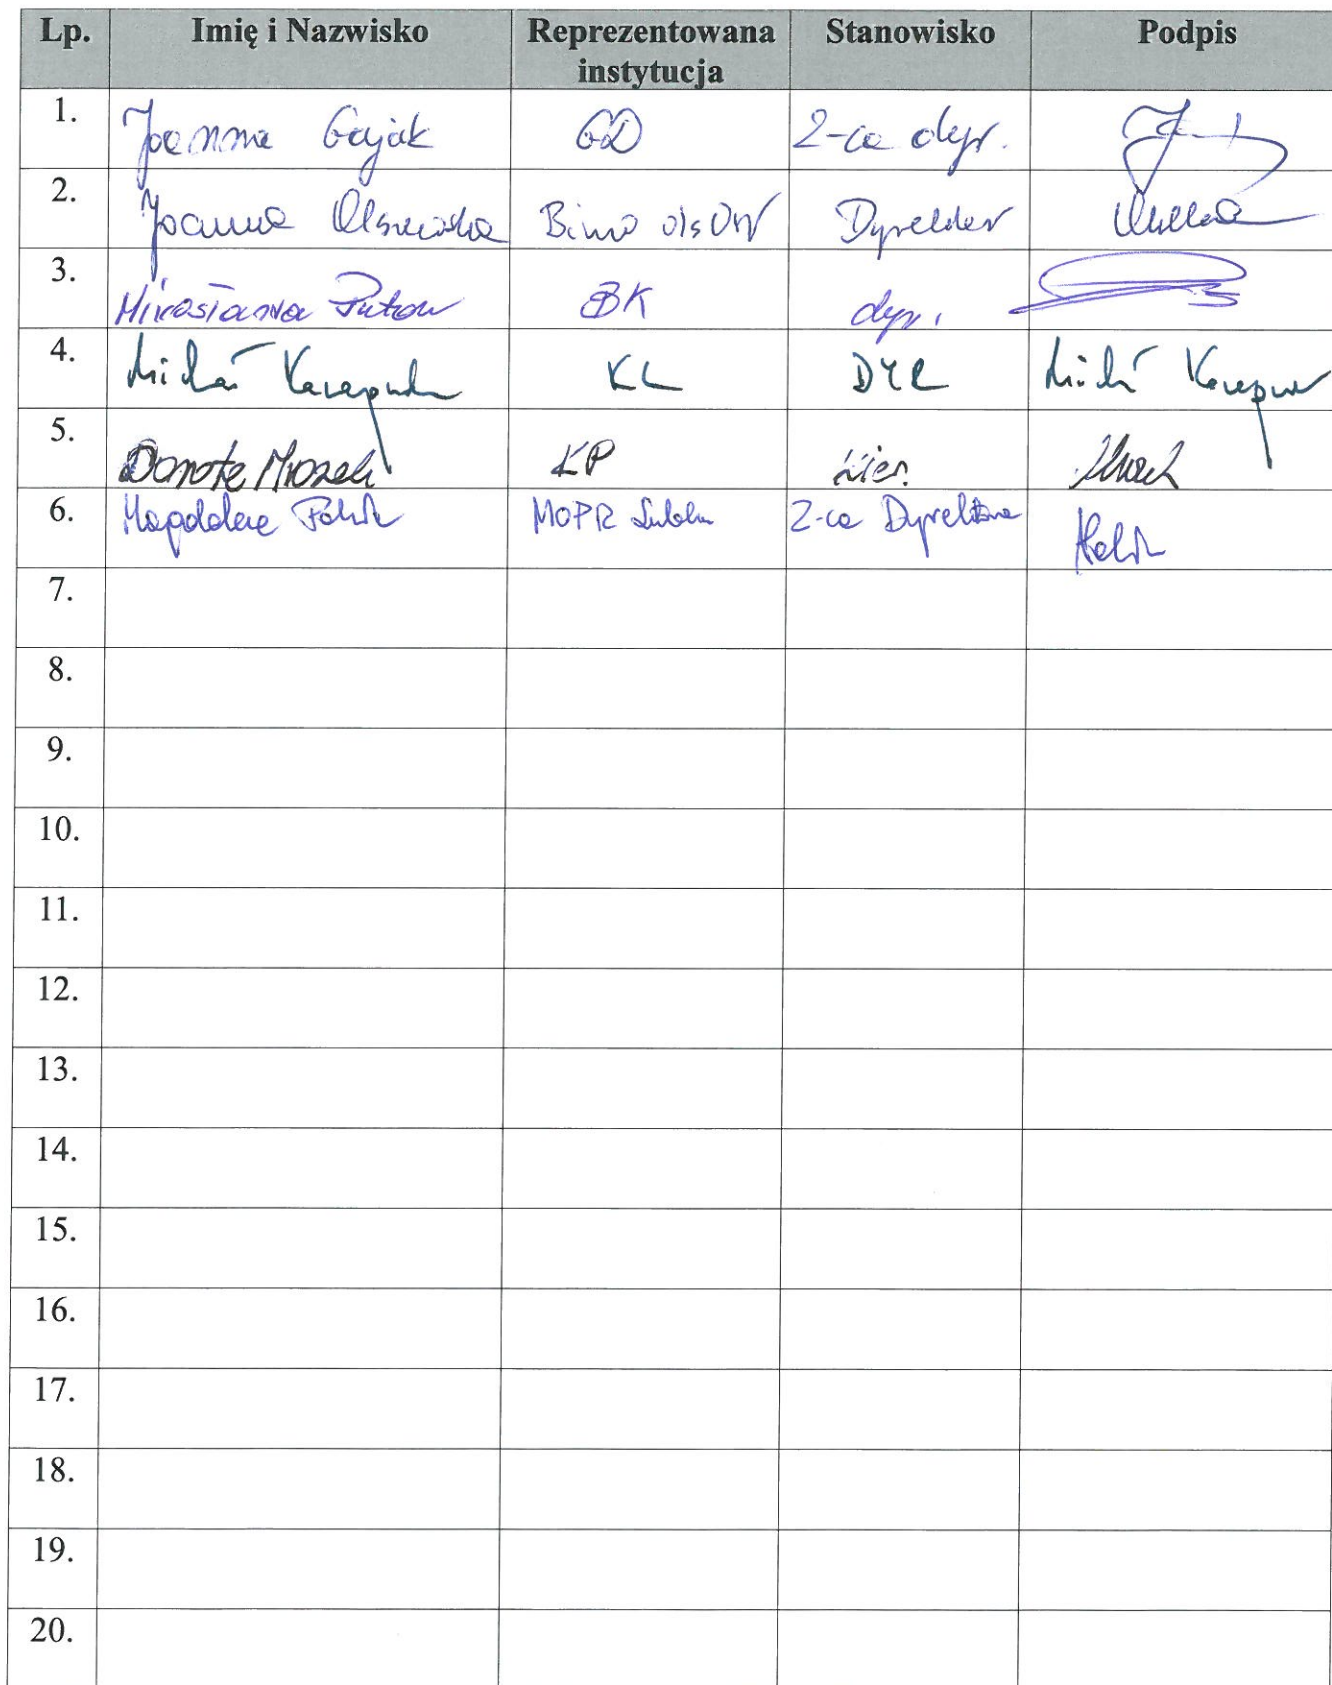 Lp. Imię i Nazwisko Reprezentowana instytucja Stanowisko Podpis
1. Joanna Gajak GD Z-ca dyr.
2. Joanna Olszewska Biuro ds OW Dyrektor
3. Mirosława Puton BK dyr.
4. Michał KL DYR Michał
5. Dorota Mrozek KP kier.
6. Magdalena MOPR Lublin Z-ca Dyrektora
7.
8.
9.
10.
11.
12.
13.
14.
15.
16.
17.
18.
19.
20.